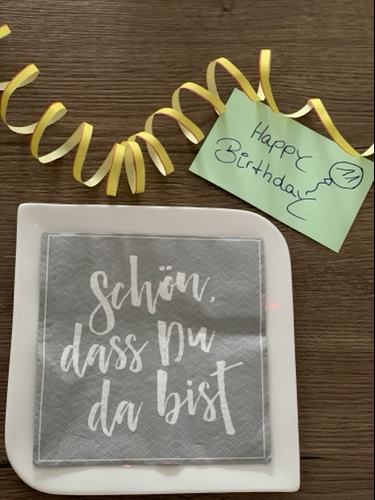 Happy
Birthday
Schön,
dass Du
da bist